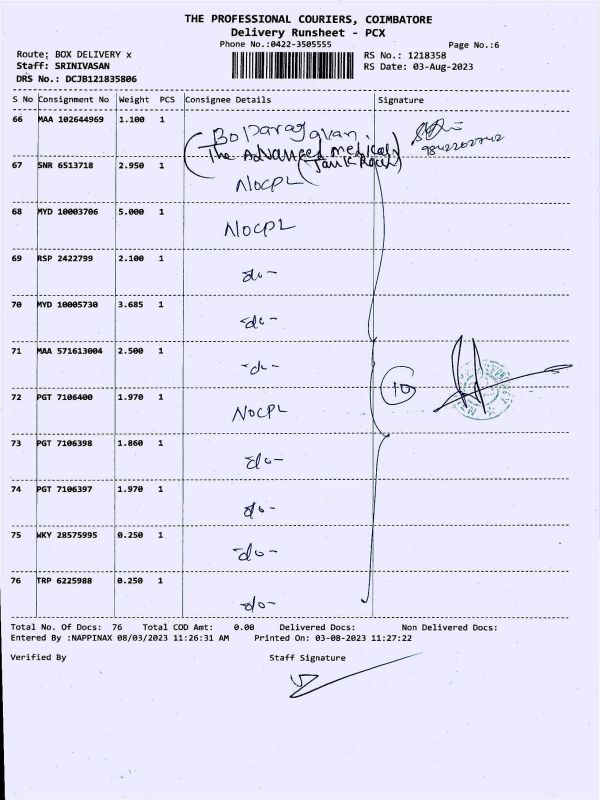 THE PROFESSIONAL COURIERS, COIMBATORE
Delivery Runsheet - PCX
Phone No.:0422-3505555
Page No.:6
Route; BOX DELIVERY x
RS No.: 1218358
Staff: SRINIVASAN
RS Date: 03-Aug-2023
DRS No.: DCJB121835806
S No Consignment No Weight PCS Consignee Details Signature
66 MAA 102644969 1.100 1
The Advanced medical
67 SNR 6513718 2.950 1
NOCPL
68 MYD 10003706 5.000 1 NOCPL
69 RSP 2422799 2.100 1
do-
70 MYD 10005730 3.685 1
do-
71 MAA 571613004 2.500 1
-do-
10
72 PGT 7106400 1.970 1 NOCPL
73 PGT 7106398 1.860 1
do-
74 PGT 7106397 1.970 1
do-
75 WKY 28575995 0.250 1
-do-
76 TRP 6225988 0.250 1
-do-
Total No. Of Docs: 76 Total COD Amt: 0.00 Delivered Docs: Non Delivered Docs:
Entered By :NAPPINAX 08/03/2023 11:26:31 AM Printed On: 03-08-2023 11:27:22
Verified By Staff Signature